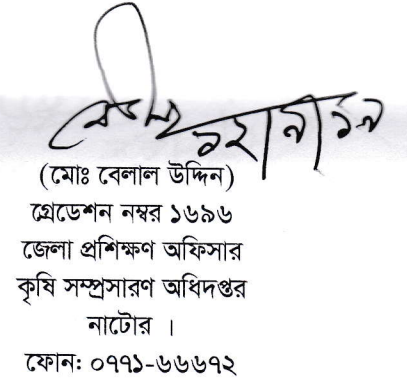 (মোঃ বেলাল উদ্দিন)
গ্রেডেশন নম্বর ১৬৯৬
জেলা প্রশিক্ষণ অফিসার
কৃষি সম্প্রসারণ অধিদপ্তর
নাটোর ।
ফোন: ০৭৭১-৬৬৬৭২